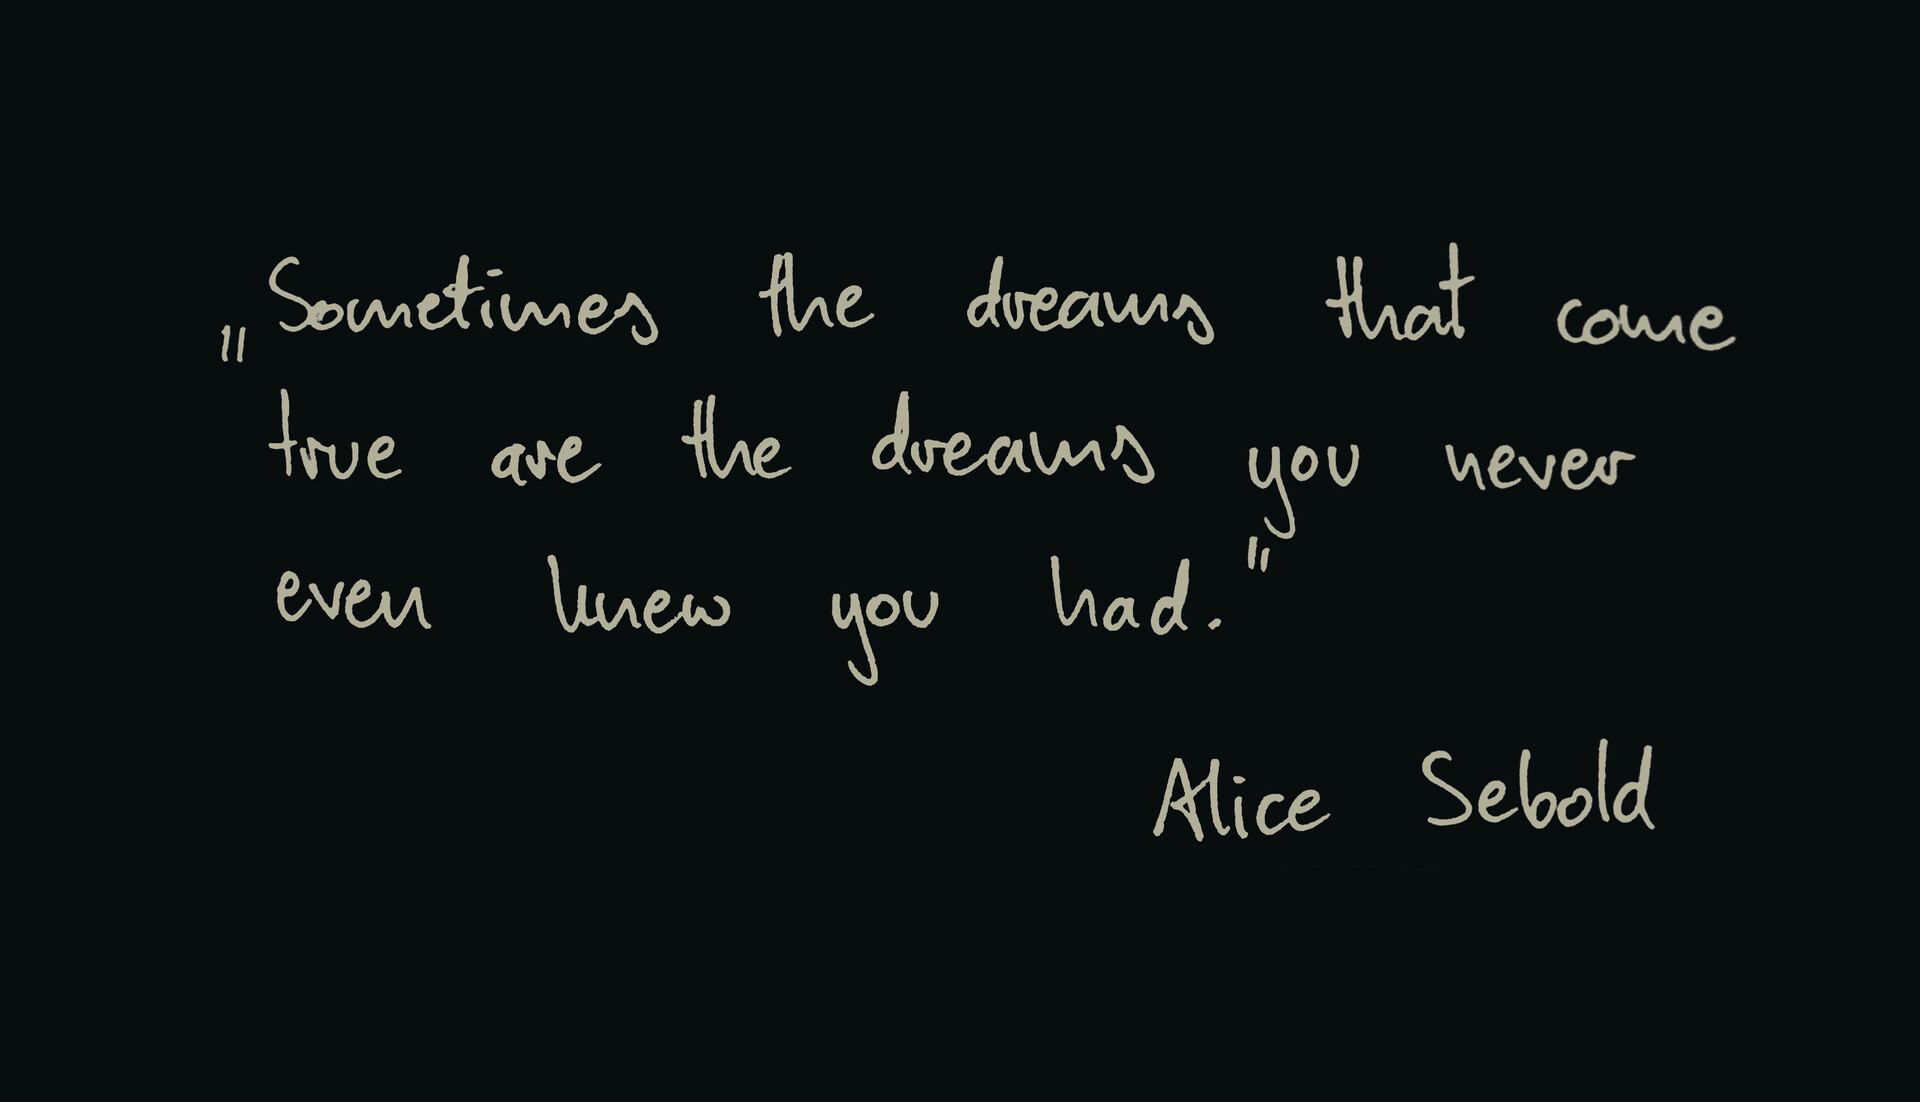 „Sometimes the dreams that come
true are the dreams you never
even knew you had."
Alice Sebold